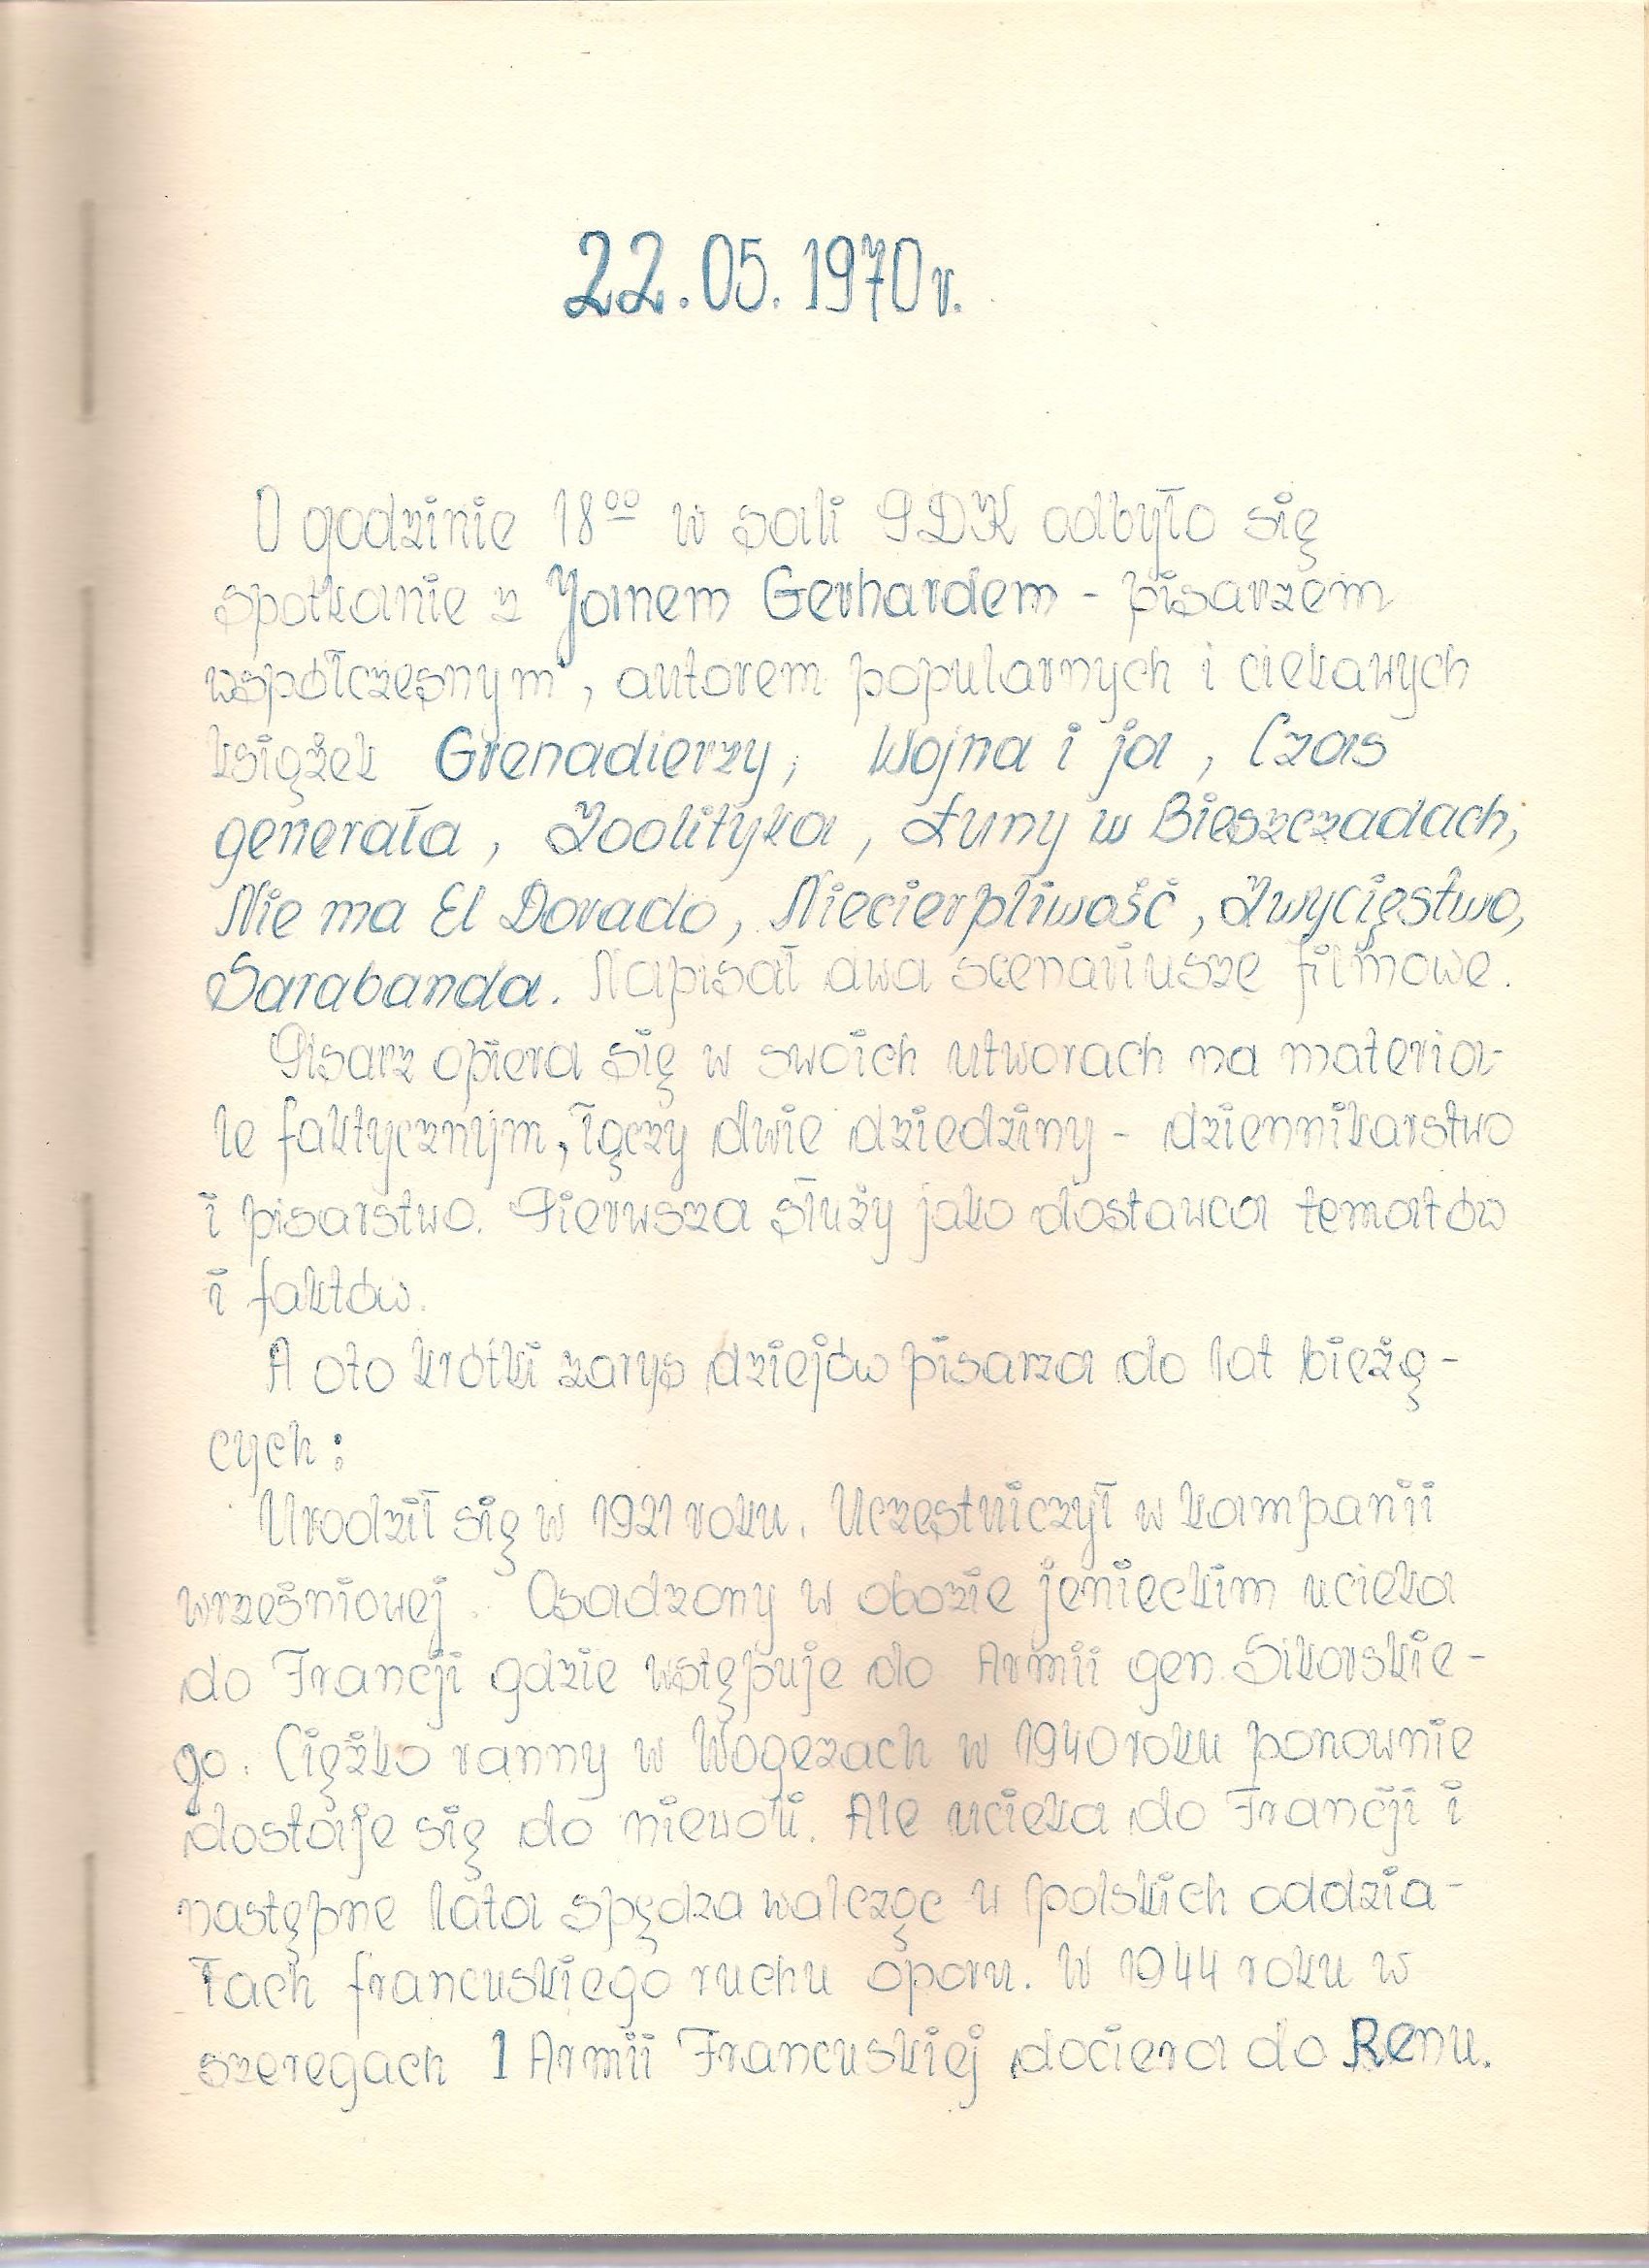 22.05.1970 r.
O godzinie 18⁰⁰ w sali PDK odbyło się
spotkanie z Janem Gerhardem - pisarzem
współczesnym, autorem popularnych i ciekawych
książek Grenadierzy, Wojna i ja, Czas
generała, Zoolityka, Łuny w Bieszczadach,
Nie ma El Dorado, Niecierpliwość, Zwycięstwo,
Sarabanda. Napisał dwa scenariusze filmowe.
Pisarz opiera się w swoich utworach na materia-
le faktycznym, łączy dwie dziedziny - dziennikarstwo
i pisarstwo. Pierwsza służy jako dostawca tematów
i faktów.
A oto krótki zarys dziejów pisarza do lat bieżą-
cych:
Urodził się w 1921 roku. Uczestniczył w kampanii
wrześniowej. Osadzony w obozie jenieckim ucieka
do Francji gdzie wstępuje do Armii gen. Sikorskie-
go. Ciężko ranny w Wogezach w 1940 roku ponownie
dostaje się do niewoli. Ale ucieka do Francji i
następne lata spędza walcząc w polskich oddzia-
łach francuskiego ruchu oporu. W 1944 roku w
szeregach 1 Armii Francuskiej dociera do Renu.